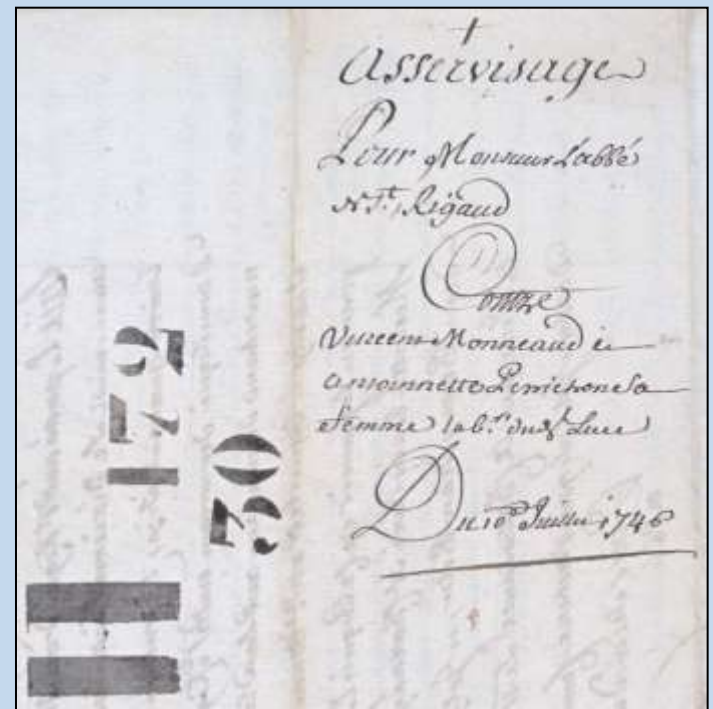 Asservisage
Pour Monsieur L'abbé
Rigaud
Contre
Vincent Monneaud et
Antoinnette Perrichone sa
femme lab.rs du
Du 10e Juillet 1746
172
30
II